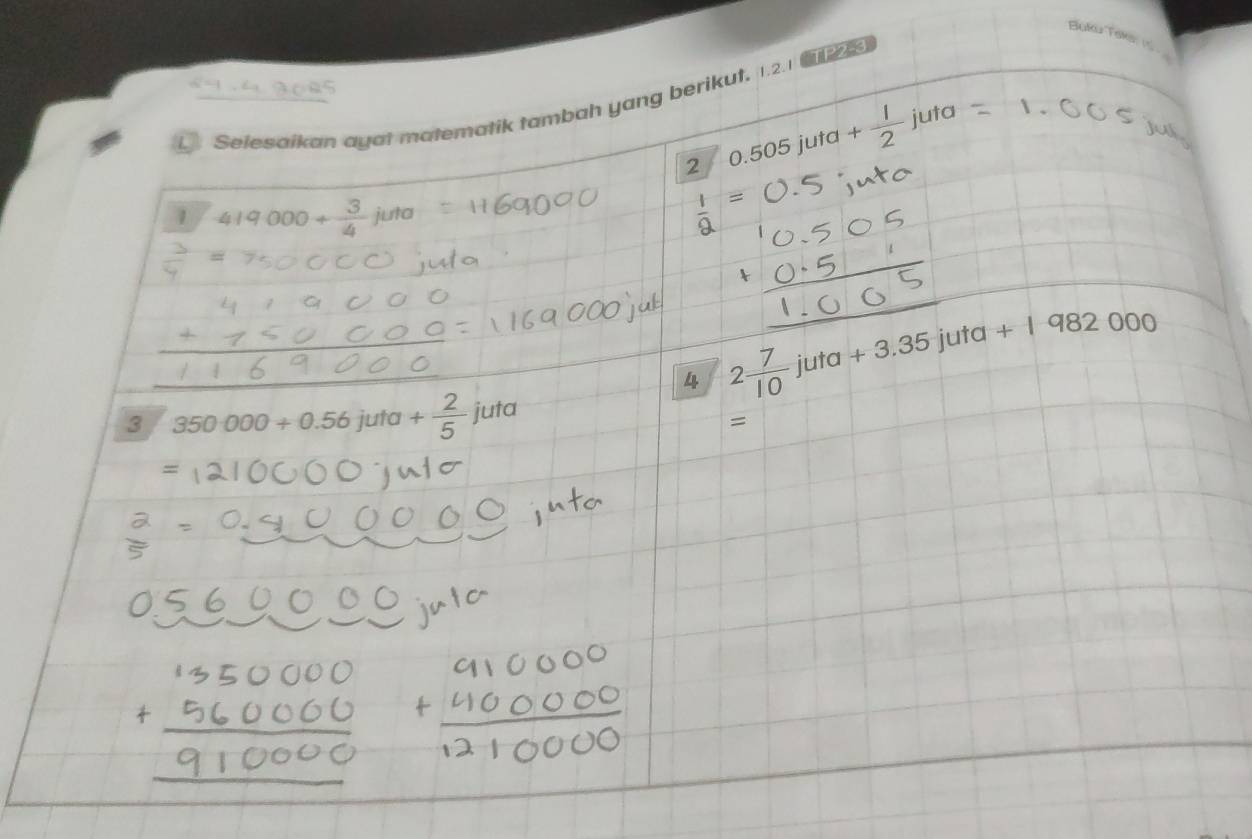 Buku Teks:
L Selesaikan ayat matematik tambah yang berikut. 1.2.1 TP2-3
1 419 000 + 3/4 juta = 1169000
= 750000 juta
419000
+ 750 000 = 1169000 jut
1169000
2 0.505 juta + 1/2 juta = 1.005
1/2 = 0.5 juta
1 0.505
+ 0.5 1
1.005
3 350 000 + 0.56 juta + 2/5 juta
= 1210000 juta
2/5 = 0.400000 juta
0.560000 juta
1350000
+ 560000
910000
910000
+ 400000
1210000
4 2 7/10 juta + 3.35 juta + 1 982 000
=